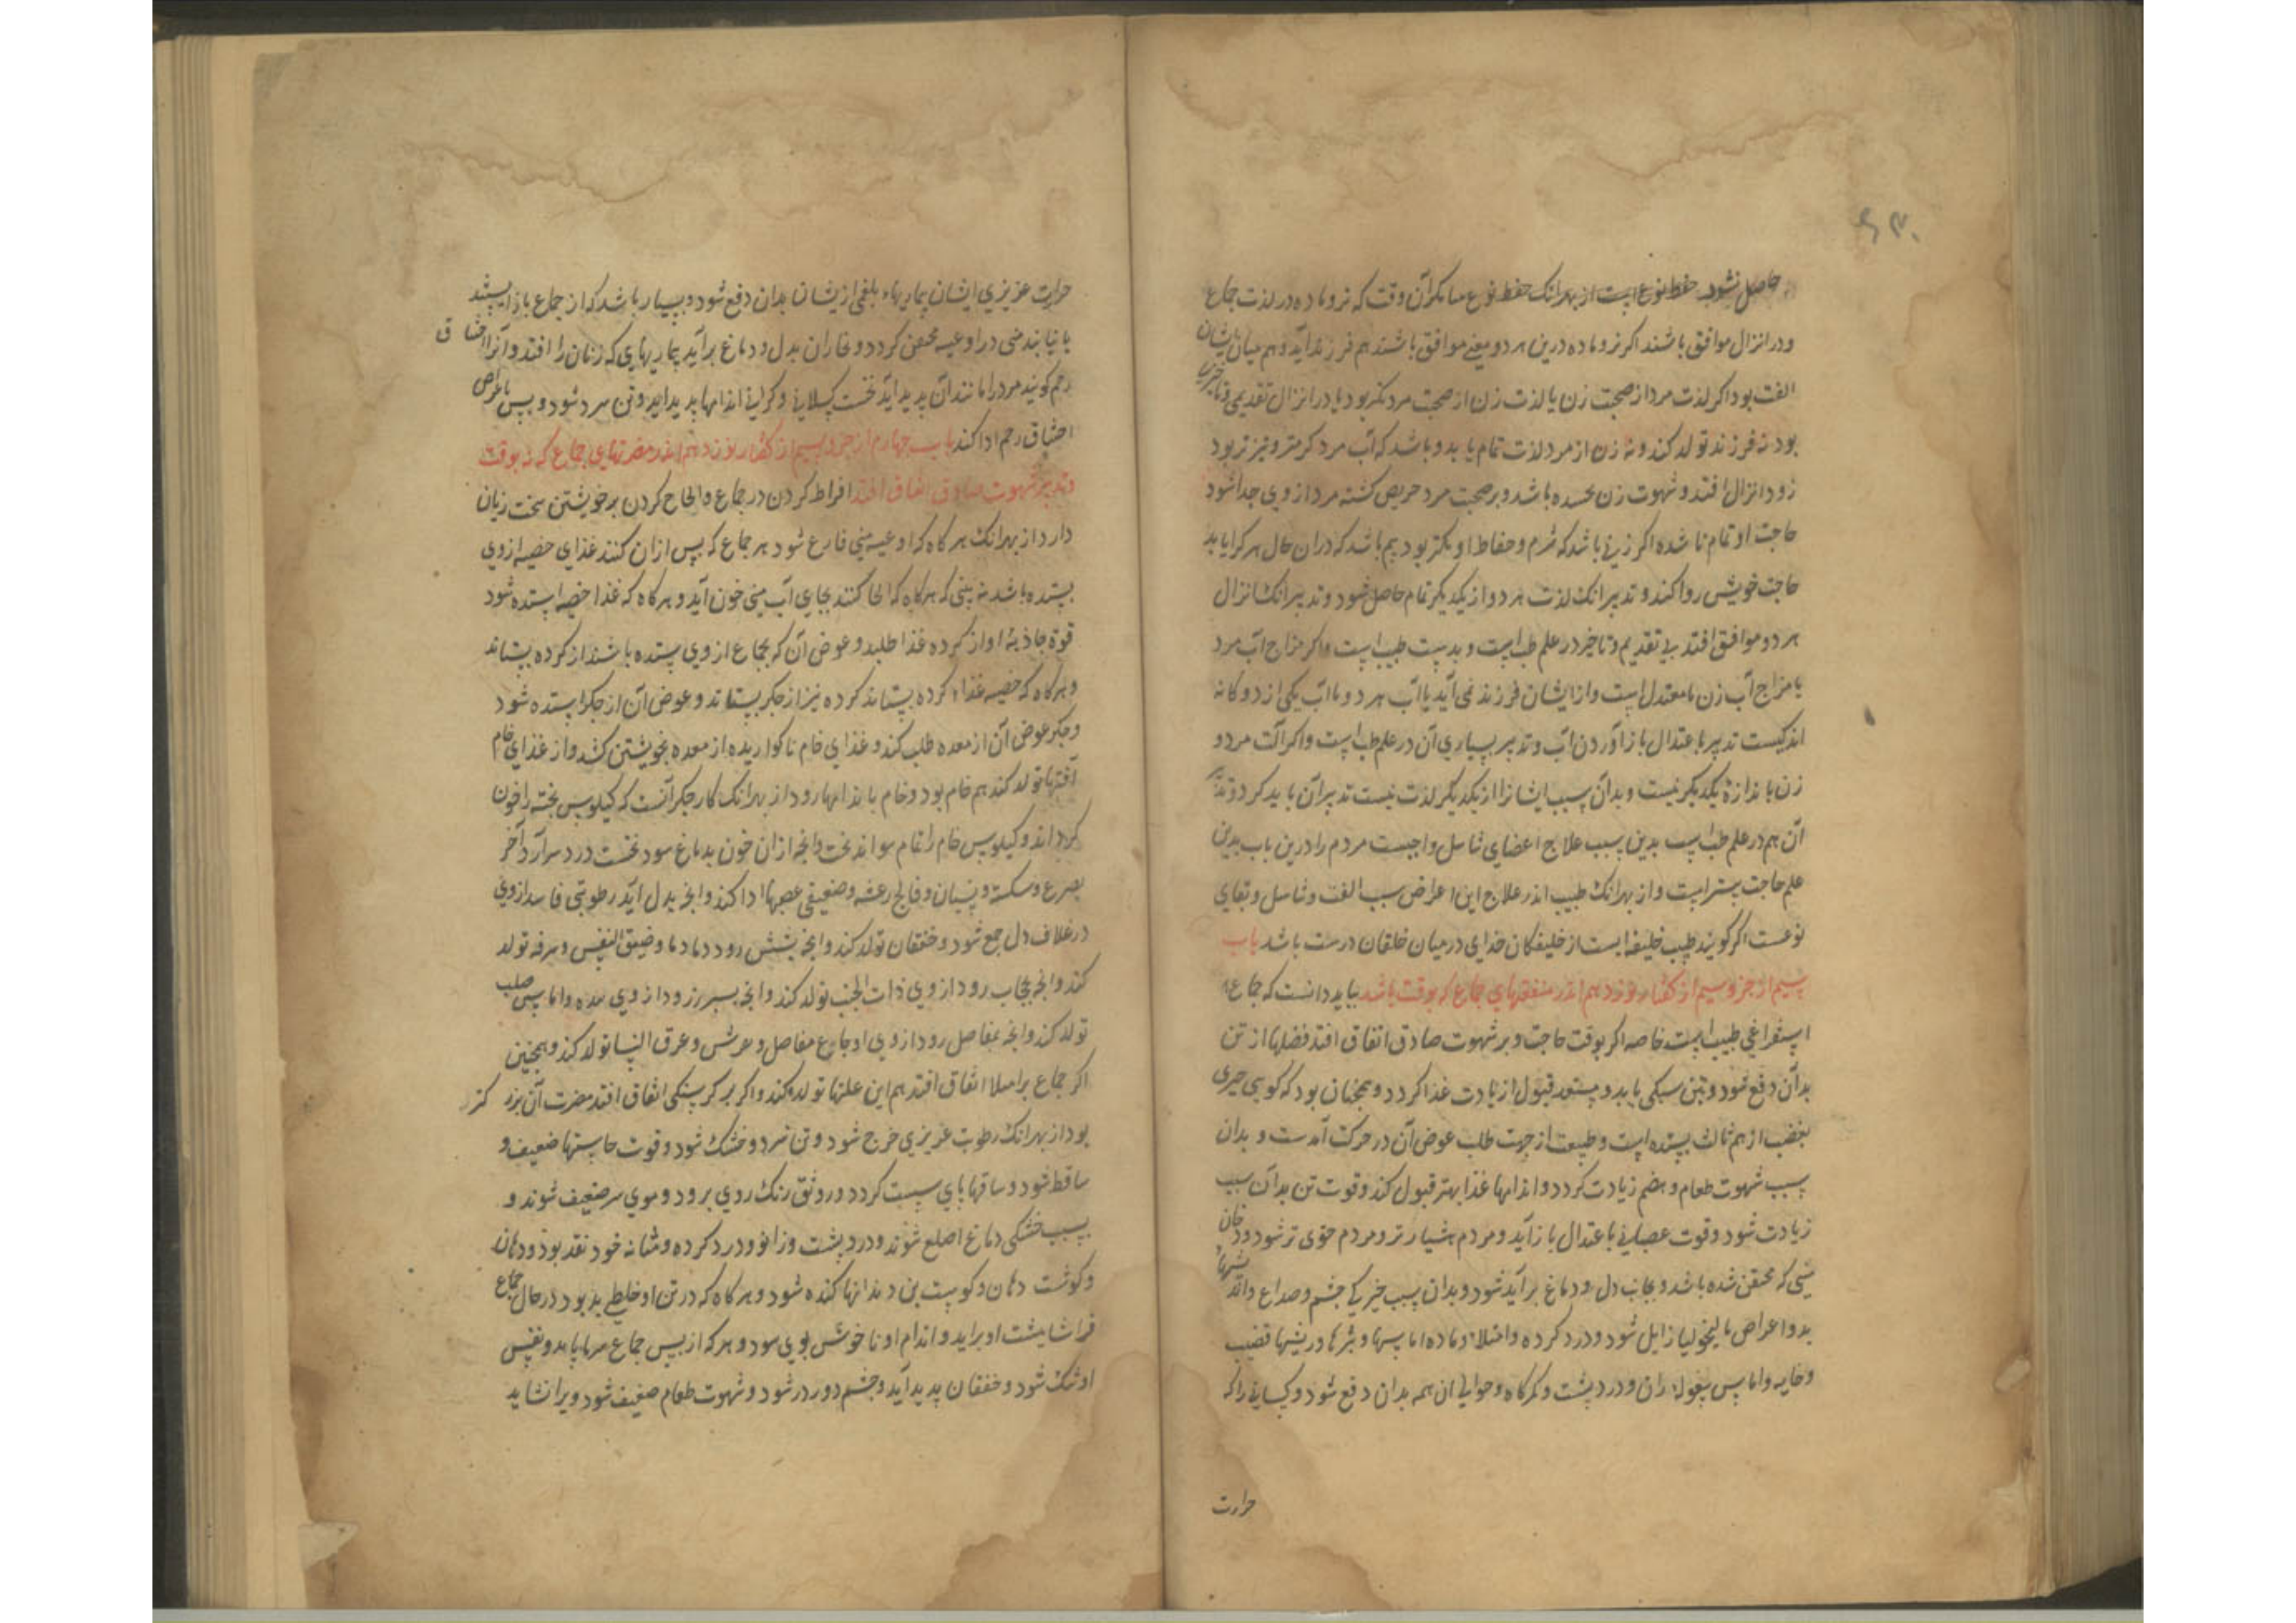 ۶۳۰
حاصل نشود حفظ نوع است از بهر انک حفظ نوع مگر آن وقت که نر و ماده در لذت جماع
و در انزال موافق باشند اگر نر و ماده درین هر دو معنی موافق باشند هم فرزند آید و هم میان ایشان
الفت بود اگر لذت مرد از صحبت زن یا لذت زن از صحبت مرد کمتر بود یا در انزال تقدیمی و تاخیری
بود نه فرزند تولد کند و نه زن از مرد لذت تمام یابد و باشد که آب مرد گرمتر و تیزتر بود
زود انزال افتد و شهوت زن باشد و بر صحبت مرد حریص گشته مرد از وی جدا شود
حاجت او تمام نا شده اگر زنی باشد که شرم و حفاظ او کمتر بود بیم باشد که در ان حال هر کرا یابد
حاجت خویش روا کند و تدبیر انک لذت هر دو از یکدیگر تمام حاصل شود و تدبیر انک انزال
هر دو موافق افتد بی تقدیم و تاخیر در علم طب است و بدست طبیب است و اگر مزاج آب مرد
یا مزاج آب زن نا معتدل است و از ایشان فرزند نمی آید یا آب هر دو یا آب یکی از دوگانه
اندکیست تدبیر با اعتدال باز آوردن آب و تدبیر بسیاری آن در علم طب است و اگر آلت مرد و
زن باندازه یکدیگر نیست و بدان سبب ایشانرا از یکدیگر لذت نیست تدبیر آن باید کرد و تدبیر
آن هم در علم طب است بدین سبب علاج اعضای تناسل واجبست مردم را درین باب بدین
علم حاجت بیشتر است و از بهر انک طبیب اندر علاج این اعراض سبب الفت و تناسل و بقای
نوعست اگر گویند طبیب خلیفه ایست از خلیفگان خدای در میان خلقان درست باشد باب
سیم از جزو سیم از گفتار نوزدهم اندر منفعتهای جماع که بوقت باشد بباید دانست که جماع
استفراغی طبیعی است خاصه اگر بوقت حاجت و بر شهوت صادق اتفاق افتد فضلها از تن
بدان دفع شود و تن سبکی یابد و مستعد قبول زیادت غذا گردد و همچنان بود که گویی چیزی
بغضب از هم ثالث بستده است و طبیعت از جهت طلب عوض آن در حرکت آمدست و بدان
سبب شهوت طعام و هضم زیادت گردد و اندامها غذا بهتر قبول کند و قوت تن بدان سبب
زیادت شود و قوت عصبانی با اعتدال باز آید و مردم هشیارتر و مردم خوی تر شود و دخان
منی که محتقن شده باشد و بجانب دل و دماغ بر آید شود و بدان سبب خیرگی چشم و صداع و اندیشهای
بد و اعراض مالیخولیا زایل شود و درد گرده و امتلا و ماده اماسها و بثرها در قضیب
و خایه و اماس پیغوله ران و درد پشت و کمرگاه و حوالی ان همه بدان دفع شود و کسانی را که
حرارت
حرارت غریزی ایشان بیماریهاء بلغمی از یشان بدان دفع شود و بسیار باشد که از جماع باز ایستند
یا نیابند منی در اوعیه محتقن گردد و بخاران بدل و دماغ بر آید بیماریهایی که زنان را افتد و آنرا اختناق
رحم گویند مرد را مانند آن پدید آید نخست کسلانی و گرانی اندامها پدید اید و تن سرد شود و پس بامراض
اختناق رحم ادا کند باب چهارم از جزو سیم از گفتار نوزدهم اندر مضرتهای جماع که نه بوقت
و نه بر شهوت صادق اتفاق افتد افراط کردن در جماع و الحاح کردن بر خویشتن سخت زیان
دارد از بهر انک هر گاه که اوعیه منی فارغ شود هر جماع که پس از ان کنند غذای خصیه از وی
بستده باشد نه بینی که هر گاه که الحاح کنند بجای آب منی خون آید و هر گاه که غذا خصیه بستده شود
قوة جاذبه او از گرده غذا طلبد و عوض آن که بجماع از وی بستده باشند از گرده بستاند
و هر گاه که خصیه غذاء گرده بستاند گرده نیز از جگر بستاند و عوض آن از جگر بستده شود
و جگر عوض آن از معده طلب کند و غذای خام ناگواریده از معده بخویشتن کشد و از غذای خام
آفتها تولد کند هم خام بود و خام باندامها رود از بهر انک کار جگر آنست که کیلوس پخته را خون
گرداند و کیلوس خام را تمام نتواند پخت و آنچه از ان خون بدماغ شود نخست درد سر آرد آخر
بصرع و سکته و نسیان و فالج و رعشه و ضعیفی عصبها ادا کند و انچه بدل آید رطوبتی فاسد از وی
در غلاف دل جمع شود و خفقان تولد کند و انچه بشش رود دما دما و ضیق النفس و سرفه تولد
کند و انچه بحجاب رود از وی ذات الجنب تولد کند و انچه بسپرز رود از وی سده و اماس صلب
تولد کند و انچه بمفاصل رود از وی اوجاع مفاصل و نقرس و عرق النسا تولد کند و همچنین
اگر جماع بر امتلا اتفاق افتد هم این علتها تولد کند و اگر بر گرسنگی اتفاق افتد مضرت آن بزرگتر
بود از بهر انک رطوبت غریزی خرج شود و تن سرد و خشک شود و قوت حاستها ضعیف و
ساقط شود و ساقها پای سست گردد و رونق رنک روی برود و موی سر ضعیف شوند و
بسبب خشکی دماغ اصلع شوند و درد پشت و زانو و درد گرده و مثانه خود نقد بود و دهان
و گوشت دهان و گوشت بن دندانها گنده شود و هر گاه که در تن او خلطی بد بود در حال جماع
فراشا پشت او براید و اندام او ناخوش بوی شود و هر که از پس جماع سرما یابد و نفس
او تنک شود و خفقان پدید آید و چشم دور در شود و شهوت طعام ضعیف شود ویرا نشاید